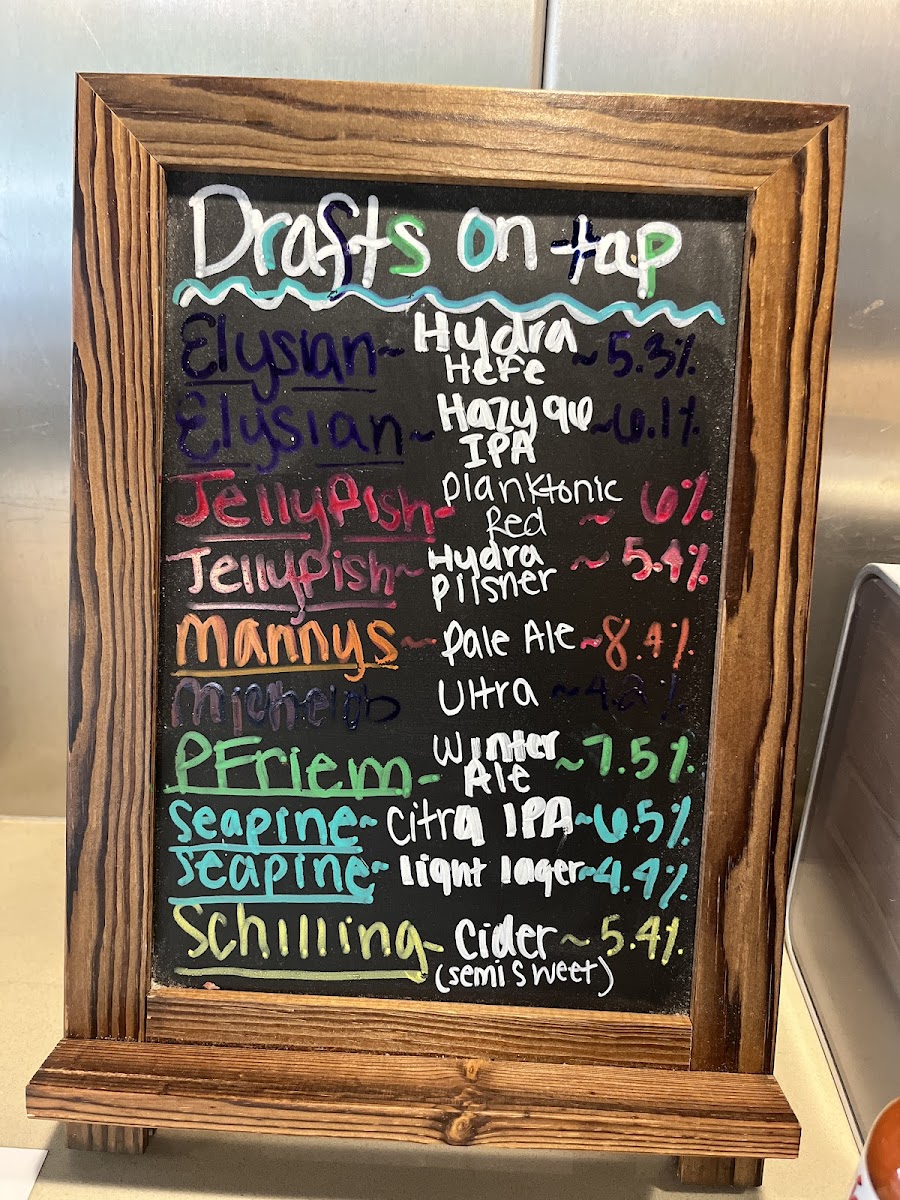 Drafts on tap
Elysian ~ Hydra Hefe ~ 5.3%
Elysian ~ Hazy IPA ~ 6.1%
Jellyfish - planktonic Red ~ 6%
Jellyfish ~ Hydra Pilsner ~ 5.4%
Mannys ~ Pale Ale ~ 8.4%
Michelob Ultra ~ 4.2%
PFriem - Winter Ale ~ 7.5%
Seapine ~ Citra IPA ~ 6.5%
Seapine ~ light lager ~ 4.4%
Schilling - Cider ~ 5.4%
(semi sweet)